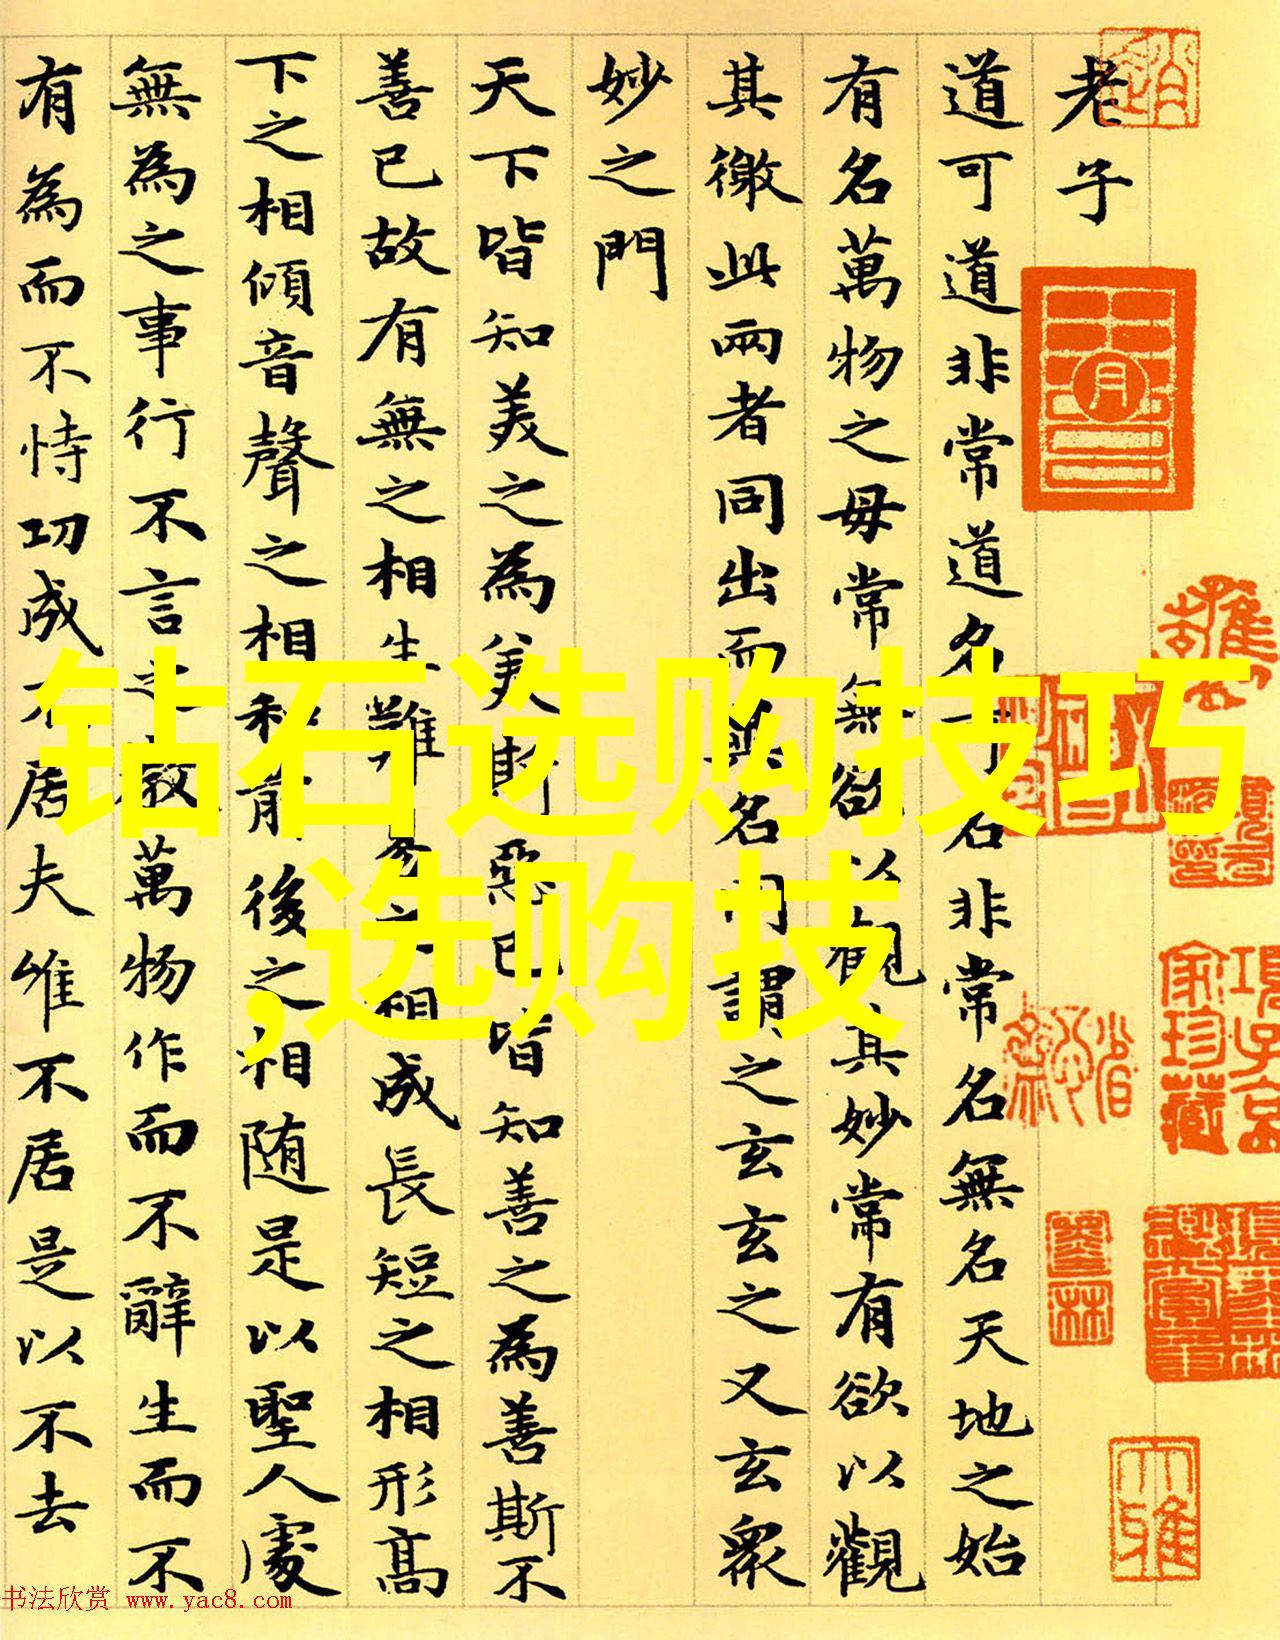 老子
道可道非常道名可名非常名無名天地之始
有名萬物之母常無欲以觀其妙常有欲以觀
其徼此兩者同出而異名同謂之玄玄之又玄衆
妙之門
天下皆知美之為美斯惡已皆知善之為善斯不
善已故有無之相生難易之相成長短之相形髙
下之相傾音聲之相和前後之相随是以聖人處
無為之事行不言之教萬物作而不辭生而不
有為而不恃功成不居夫唯不居是以不去
钻石选购技巧
,选购技
項子京
家珍藏
大雅
书法欣赏 www.yac8.com